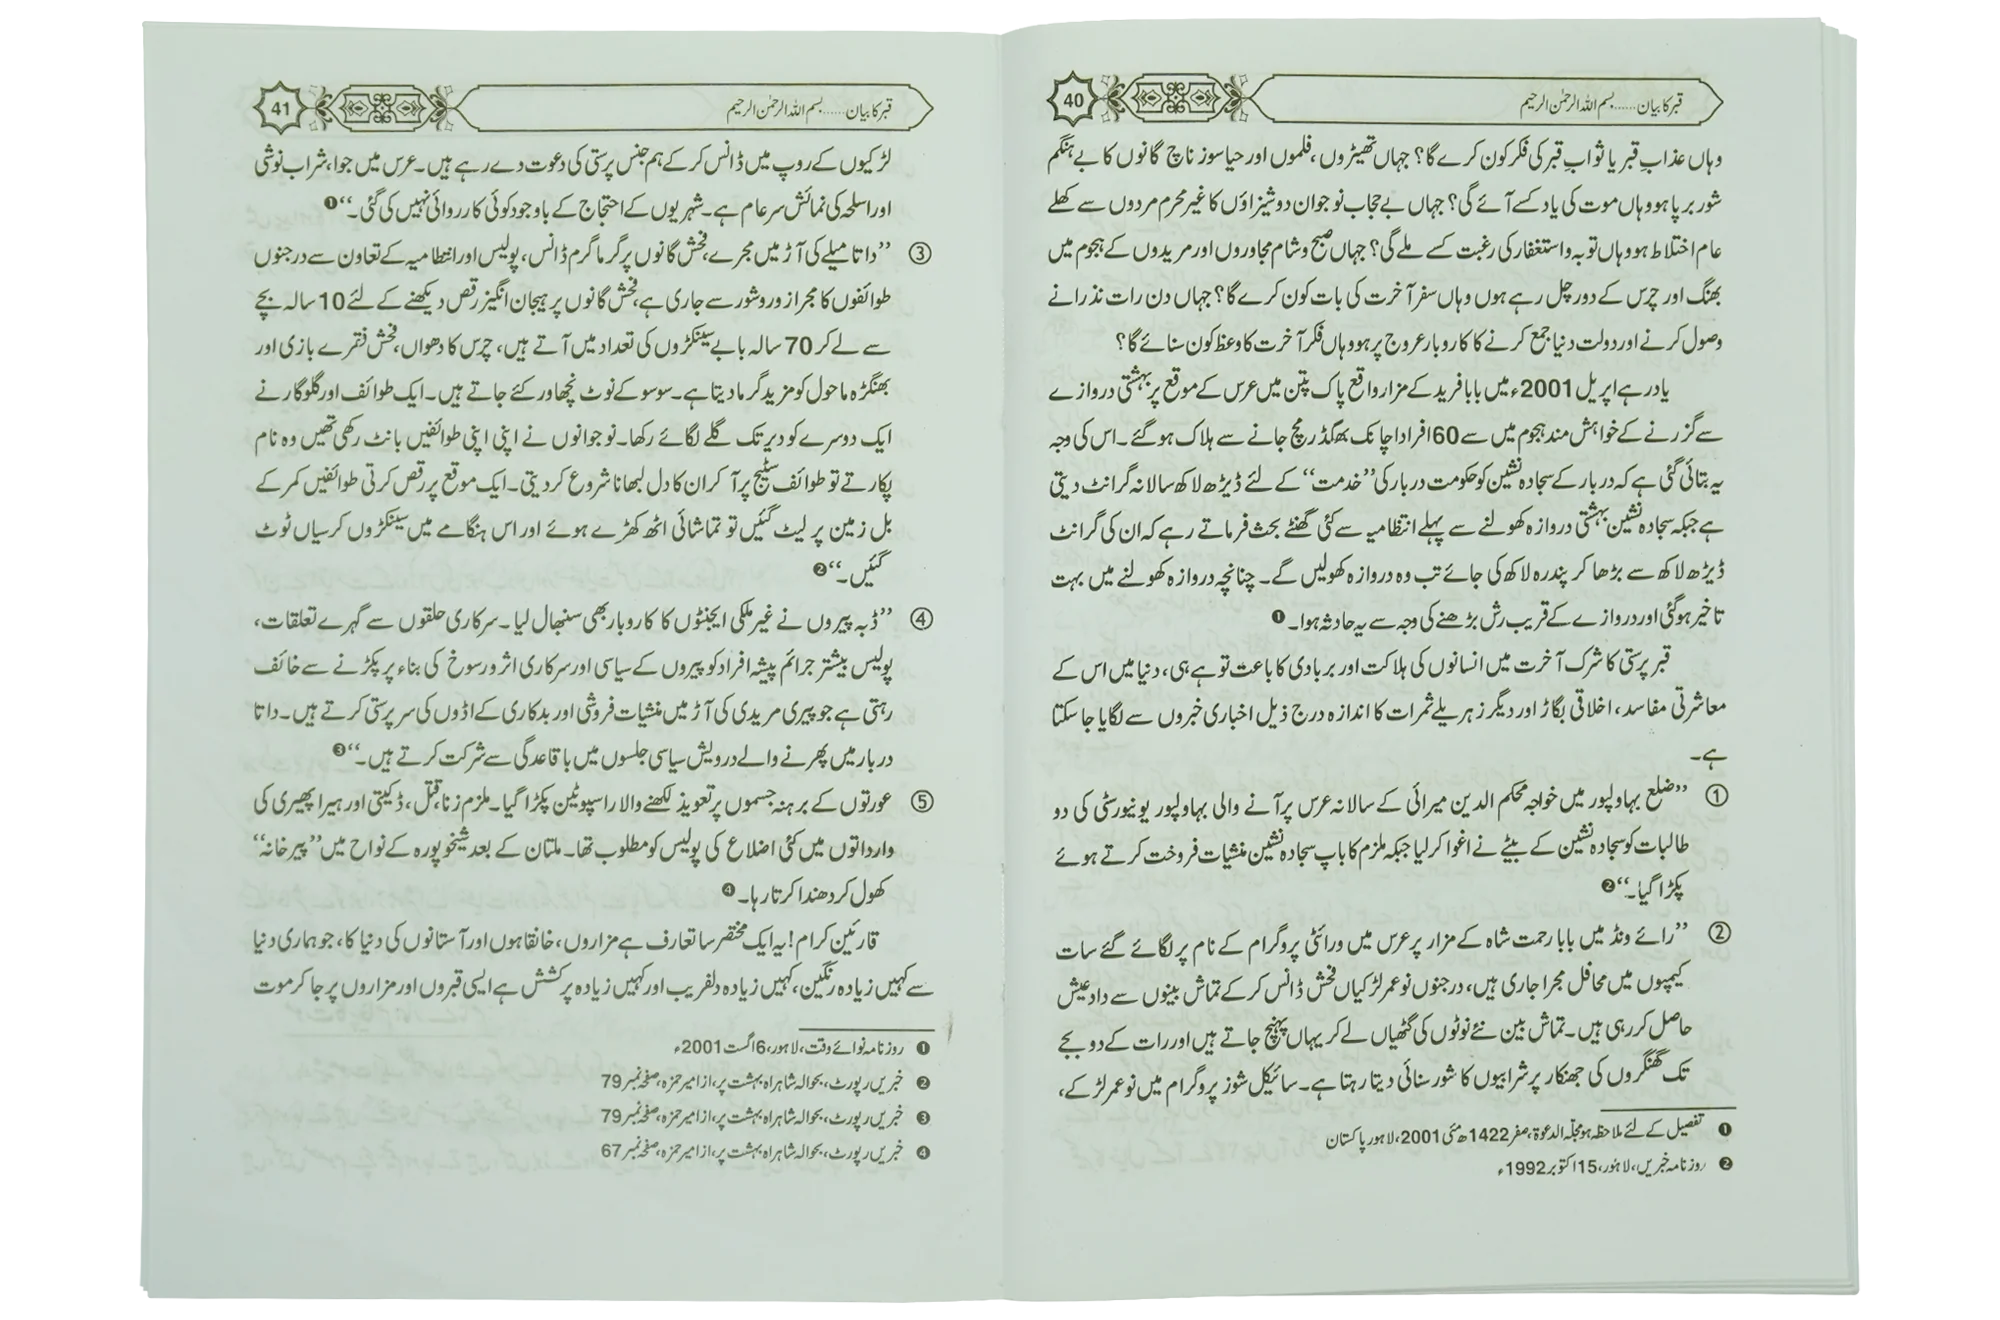 قبر کا بیان......بسم اللہ الرحمٰن الرحیم
40
وہاں عذابِ قبر یا ثوابِ قبر کی فکر کون کرے گا؟ جہاں تھیٹروں، فلموں اور حیا سوز ناچ گانوں کا بے ہنگم
شور برپا ہو وہاں موت کی یاد کسے آئے گی؟ جہاں بے حجاب نوجوان دوشیزاؤں کا غیر محرم مردوں سے کھلے
عام اختلاط ہو وہاں توبہ و استغفار کی رغبت کسے ملے گی؟ جہاں صبح و شام مجاوروں اور مریدوں کے ہجوم میں
بھنگ اور چرس کے دور چل رہے ہوں وہاں سفر آخرت کی بات کون کرے گا؟ جہاں دن رات نذرانے
وصول کرنے اور دولت دنیا جمع کرنے کا کاروبار عروج پر ہو وہاں فکر آخرت کا وعظ کون سنائے گا؟
یاد رہے اپریل 2001ء میں بابا فرید کے مزار واقع پاک پتن میں عرس کے موقع پر بہشتی دروازے
سے گزرنے کے خواہش مند ہجوم میں سے 60 افراد اچانک بھگڈر مچ جانے سے ہلاک ہوگئے۔ اس کی وجہ
یہ بتائی گئی ہے کہ دربار کے سجادہ نشین کو حکومت دربار کی ’’خدمت‘‘ کے لئے ڈیڑھ لاکھ سالانہ گرانٹ دیتی
ہے جبکہ سجادہ نشین بہشتی دروازہ کھولنے سے پہلے انتظامیہ سے کئی گھنٹے بحث فرماتے رہے کہ ان کی گرانٹ
ڈیڑھ لاکھ سے بڑھا کر پندرہ لاکھ کی جائے تب وہ دروازہ کھولیں گے۔ چنانچہ دروازہ کھولنے میں بہت
تاخیر ہوگئی اور دروازے کے قریب رش بڑھنے کی وجہ سے یہ حادثہ ہوا۔ ❶
قبر پرستی کا شرک آخرت میں انسانوں کی ہلاکت اور بربادی کا باعث تو ہے ہی، دنیا میں اس کے
معاشرتی مفاسد، اخلاقی بگاڑ اور دیگر زہریلے ثمرات کا اندازہ درج ذیل اخباری خبروں سے لگایا جا سکتا
ہے۔
① ’’ضلع بہاولپور میں خواجہ محکم الدین میرائی کے سالانہ عرس پر آنے والی بہاولپور یونیورسٹی کی دو
طالبات کو سجادہ نشین کے بیٹے نے اغوا کر لیا جبکہ ملزم کا باپ سجادہ نشین منشیات فروخت کرتے ہوئے
پکڑا گیا۔‘‘ ❷
② ’’رائے ونڈ میں بابا رحمت شاہ کے مزار پر عرس میں ورائٹی پروگرام کے نام پر لگائے گئے سات
کیمپوں میں محافل مجرا جاری ہیں، درجنوں نوعمر لڑکیاں فحش ڈانس کرکے تماش بینوں سے داد عیش
حاصل کر رہی ہیں۔ تماش بین نئے نوٹوں کی گٹھیاں لے کر یہاں پہنچ جاتے ہیں اور رات کے دو بجے
تک گھنگروں کی جھنکار پر شرابیوں کا شور سنائی دیتا رہتا ہے۔ سائیکل شوز پروگرام میں نوعمر لڑکے،
❶ تفصیل کے لئے ملاحظہ ہو مجلّہ الدعوۃ، صفر 1422ھ مئی 2001، لاہور پاکستان
❷ روزنامہ خبریں، لاہور، 15 اکتوبر 1992ء
قبر کا بیان......بسم اللہ الرحمٰن الرحیم
41
لڑکیوں کے روپ میں ڈانس کرکے ہم جنس پرستی کی دعوت دے رہے ہیں۔ عرس میں جوا، شراب نوشی
اور اسلحہ کی نمائش سر عام ہے۔ شہریوں کے احتجاج کے باوجود کوئی کارروائی نہیں کی گئی۔‘‘ ❶
③ ’’داتا میلے کی آڑ میں مجرے، فحش گانوں پر گرما گرم ڈانس، پولیس اور انتظامیہ کے تعاون سے درجنوں
طوائفوں کا مجرا زور و شور سے جاری ہے، فحش گانوں پر ہیجان انگیز رقص دیکھنے کے لئے 10 سالہ بچے
سے لے کر 70 سالہ بابے سینکڑوں کی تعداد میں آتے ہیں، چرس کا دھواں، فحش فقرے بازی اور
بھنگڑہ ماحول کو مزید گرما دیتا ہے۔ سو سو کے نوٹ نچھاور کئے جاتے ہیں۔ ایک طوائف اور گلوگار نے
ایک دوسرے کو دیر تک گلے لگائے رکھا۔ نوجوانوں نے اپنی اپنی طوائفیں بانٹ رکھی تھیں وہ نام
پکارتے تو طوائف سٹیج پر آ کر ان کا دل لبھانا شروع کر دیتی۔ ایک موقع پر رقص کرتی طوائفیں کمر کے
بل زمین پر لیٹ گئیں تو تماشائی اٹھ کھڑے ہوئے اور اس ہنگامے میں سینکڑوں کرسیاں ٹوٹ
گئیں۔‘‘ ❷
④ ’’ڈبہ پیروں نے غیر ملکی ایجنٹوں کا کاروبار بھی سنبھال لیا۔ سرکاری حلقوں سے گہرے تعلقات،
پولیس بیشتر جرائم پیشہ افراد کو پیروں کے سیاسی اور سرکاری اثر و رسوخ کی بناء پر پکڑنے سے خائف
رہتی ہے جو پیری مریدی کی آڑ میں منشیات فروشی اور بدکاری کے اڈوں کی سرپرستی کرتے ہیں۔ داتا
دربار میں پھرنے والے درویش سیاسی جلسوں میں باقاعدگی سے شرکت کرتے ہیں۔‘‘ ❸
⑤ عورتوں کے برہنہ جسموں پر تعویذ لکھنے والا راسپوٹین پکڑا گیا۔ ملزم زنا، قتل، ڈکیتی اور ہیرا پھیری کی
وارداتوں میں کئی اضلاع کی پولیس کو مطلوب تھا۔ ملتان کے بعد شیخوپورہ کے نواح میں ’’پیر خانہ‘‘
کھول کر دھندا کرتا رہا۔ ❹
قارئین کرام! یہ ایک مختصر سا تعارف ہے مزاروں، خانقاہوں اور آستانوں کی دنیا کا، جو ہماری دنیا
سے کہیں زیادہ رنگین، کہیں زیادہ دلفریب اور کہیں زیادہ پرکشش ہے ایسی قبروں اور مزاروں پر جا کر موت
❶ روزنامہ نوائے وقت، لاہور، 6 اگست 2001ء
❷ خبریں رپورٹ، بحوالہ شاہراہ بہشت پر، از امیر حمزہ، صفحہ نمبر 79
❸ خبریں رپورٹ، بحوالہ شاہراہ بہشت پر، از امیر حمزہ، صفحہ نمبر 79
❹ خبریں رپورٹ، بحوالہ شاہراہ بہشت پر، از امیر حمزہ، صفحہ نمبر 67